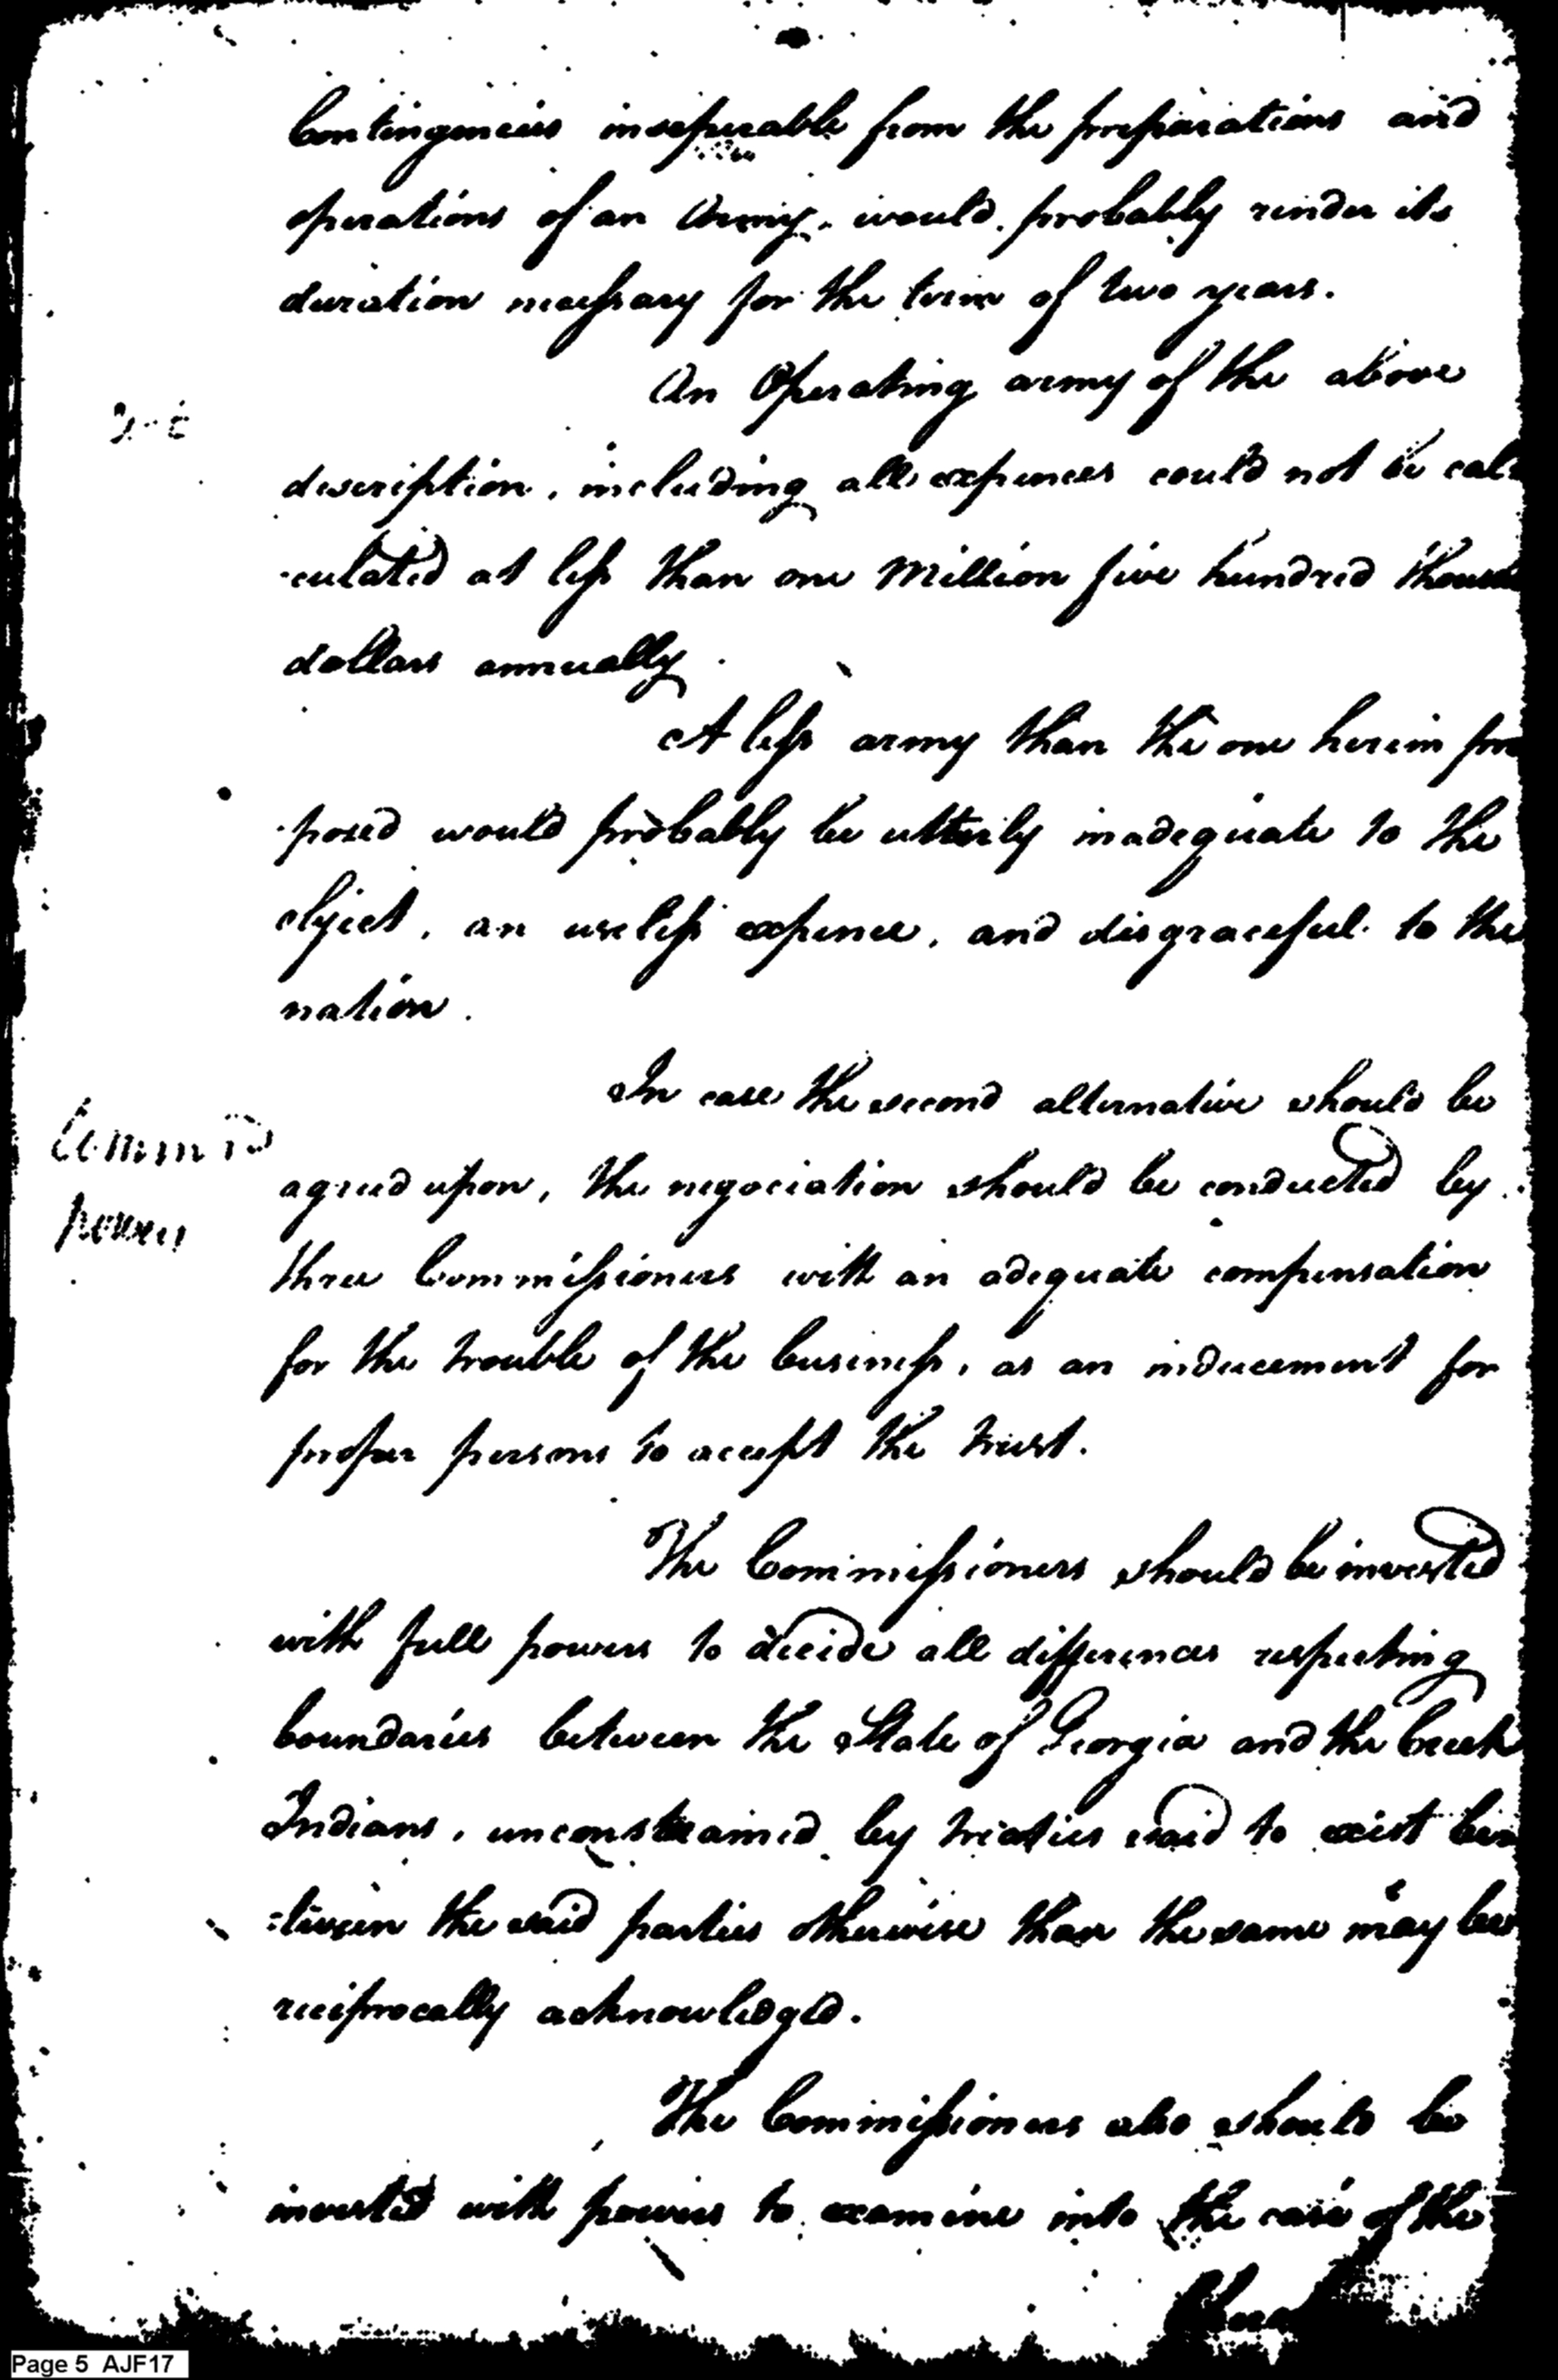 Contingencies inseperable from the preparations and
operations of an Army, would probably render its
duration necessary for the term of two years.
An Operating army of the above
description, including all expences could not be cal
-culated at less than one Million five hundred thousd
dollars annually.
A less army than the one herein pro
-posed would probably be utterly inadequate to the
object, an useless expence, and disgraceful to the
nation.
In case the second alternative should be
Comm rs
agreed upon, the negociation should be conducted by
powers
three Commissioners with an adequate compensation
for the trouble of the business, as an inducement for
proper persons to accept the trust.
The Commissioners should be invested
with full powers to decide all differences respecting
boundaries between the State of Georgia and the Creek
Indians, unconstrained by treaties said to exist be
=tween the said parties otherwise than the same may be
reciprocally acknowledged.
The Commissioners also should be
invested with powers to examine into the case of the
Page 5 AJF17